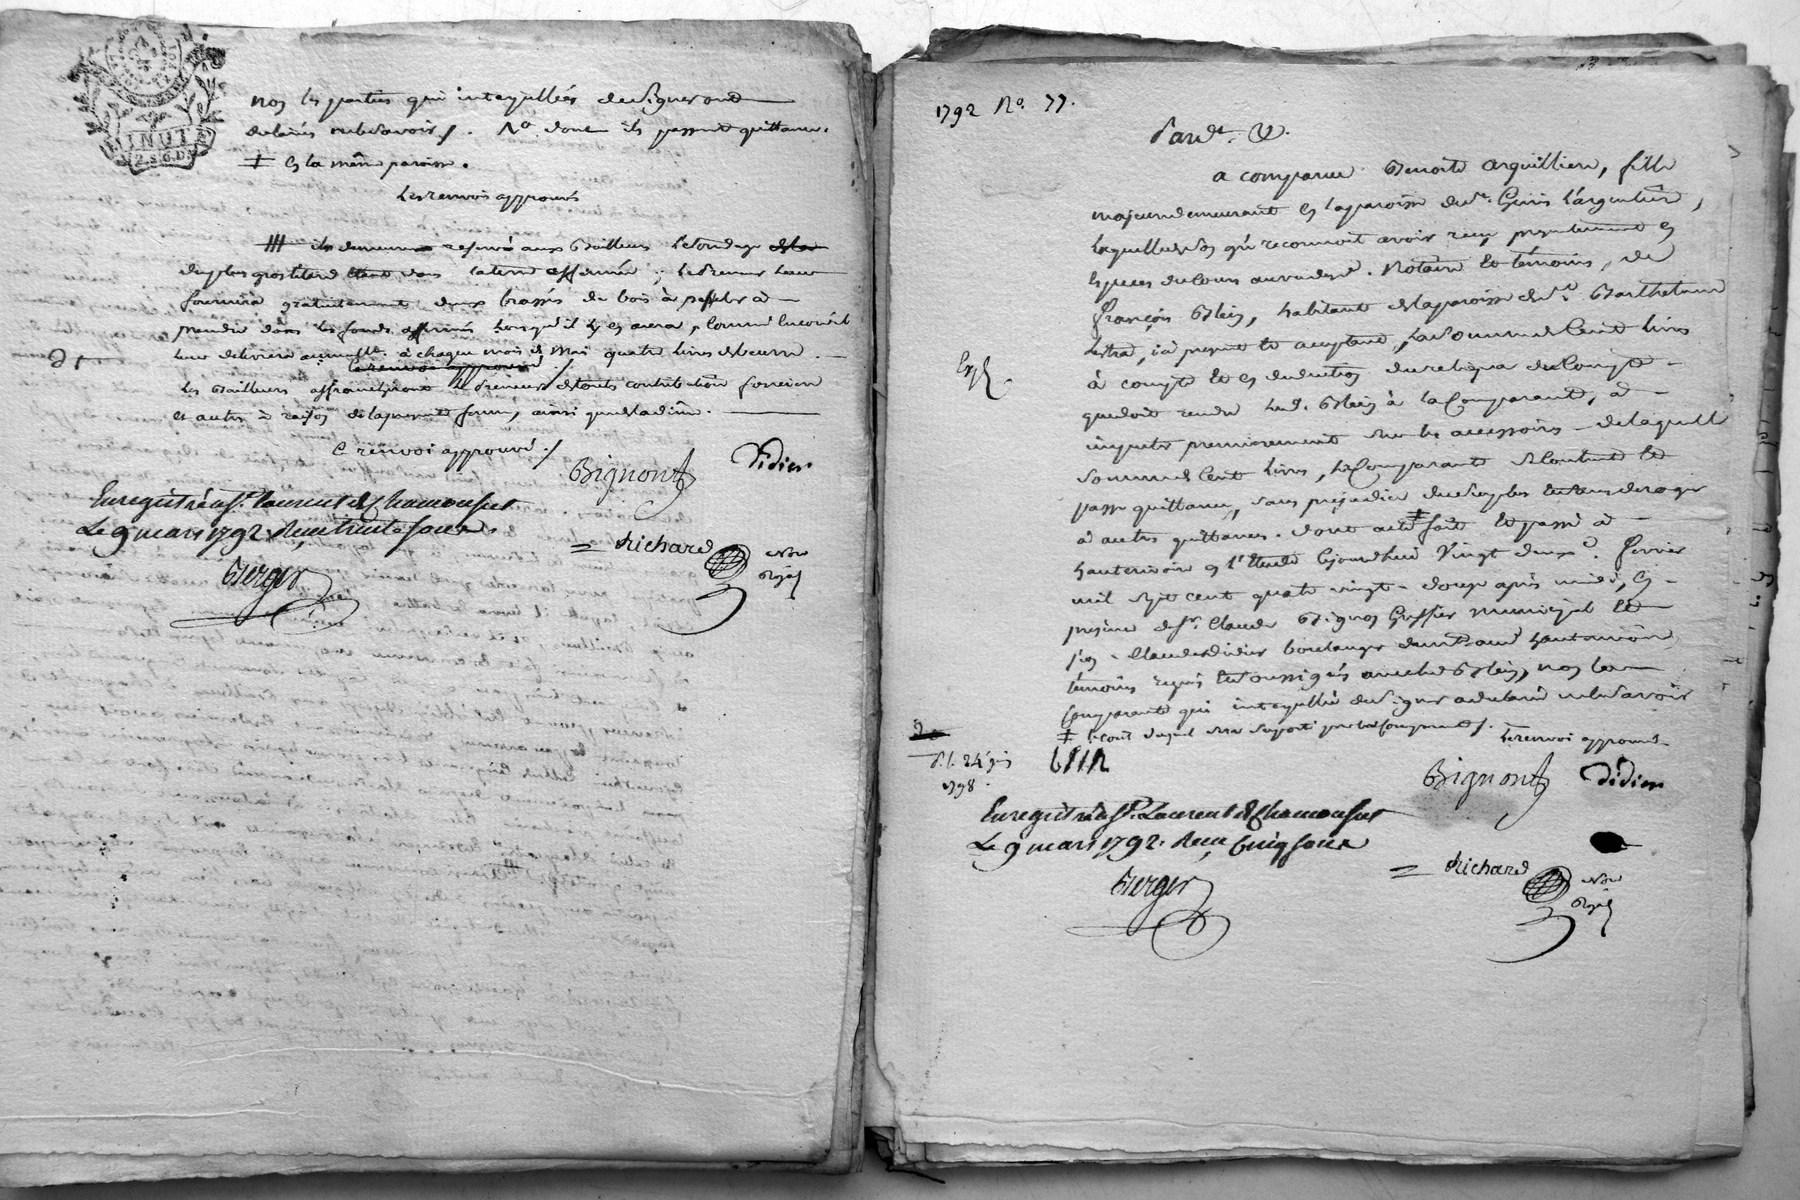 MINUTE
2. S. 6. D.
non les parties qui interpellées de signer ont
declarés ne le savoir /. No. dont ils passent quittance.
‡ en la même paroisse.
Les renvois approuvés
reservé aux Bailleurs
du plus gros dans la terre affermée ; le Preneur leur
fournira gratuitement deux brasses de bois à à
prendre dans les fonds affermés lorsqu'il y en aura,
leur delivrera à chaque mois de mai quatre livres de beurre
ce renvoi approuvé /
Les Bailleurs affranchiront le Preneur de toute contribution fonciere
et autre à raison de la presente ferme, ainsi que de la dîme.
Ce renvoi approuvé /
Bignon Didier
Enregistré à St. Laurent de Chamousset
Le 9 mars 1792. Reçu trente sous
Berger
= Richard Nore Royal
1792 No. 77.
Pardt. &.
a comparue Benoite Arquilliere, fille
majeure demeurant en la paroisse de St. Genis l'argentiere,
laquelle de son gré reconnoit avoir reçu presentement en
especes de cours au vu des Notaire et témoins, de
François Blein, habitant de la paroisse de St. Barthelemi
Lestra, ici present et acceptant, la somme de Cent livres
à compte et en deduction du reliqua du Compte
que doit rendre led. Blein à la Comparante, à
imputer premierement sur les accessoires de laquelle
somme de Cent livres, la Comparante se contente et
passe quittance, sans prejudice du surplus et sans deroger
à autres quittances. dont acte ‡ fait et passé à
hauterivoire en l'Etude Cejourd'hui Vingt deux fevrier
mil sept cent quatre vingt douze après midi, en
presence de Sr. Claude Bignon Greffier municipal et
Sr. Claude Didier boulanger demeurant aud. hauterivoire
temoins requis et soussignés avec led. Blein, non la
Comparante qui interpellée de signer a declaré ne le savoir
‡ le cout duquel sera suporté par la Comparante /. Le renvoi approuvé
Exp.
1798.
blin
Bignon Didier
Enregistré à St. Laurent de Chamousset
Le 9 mars 1792. Reçu Cinq sous
Berger
= Richard Nore Royal